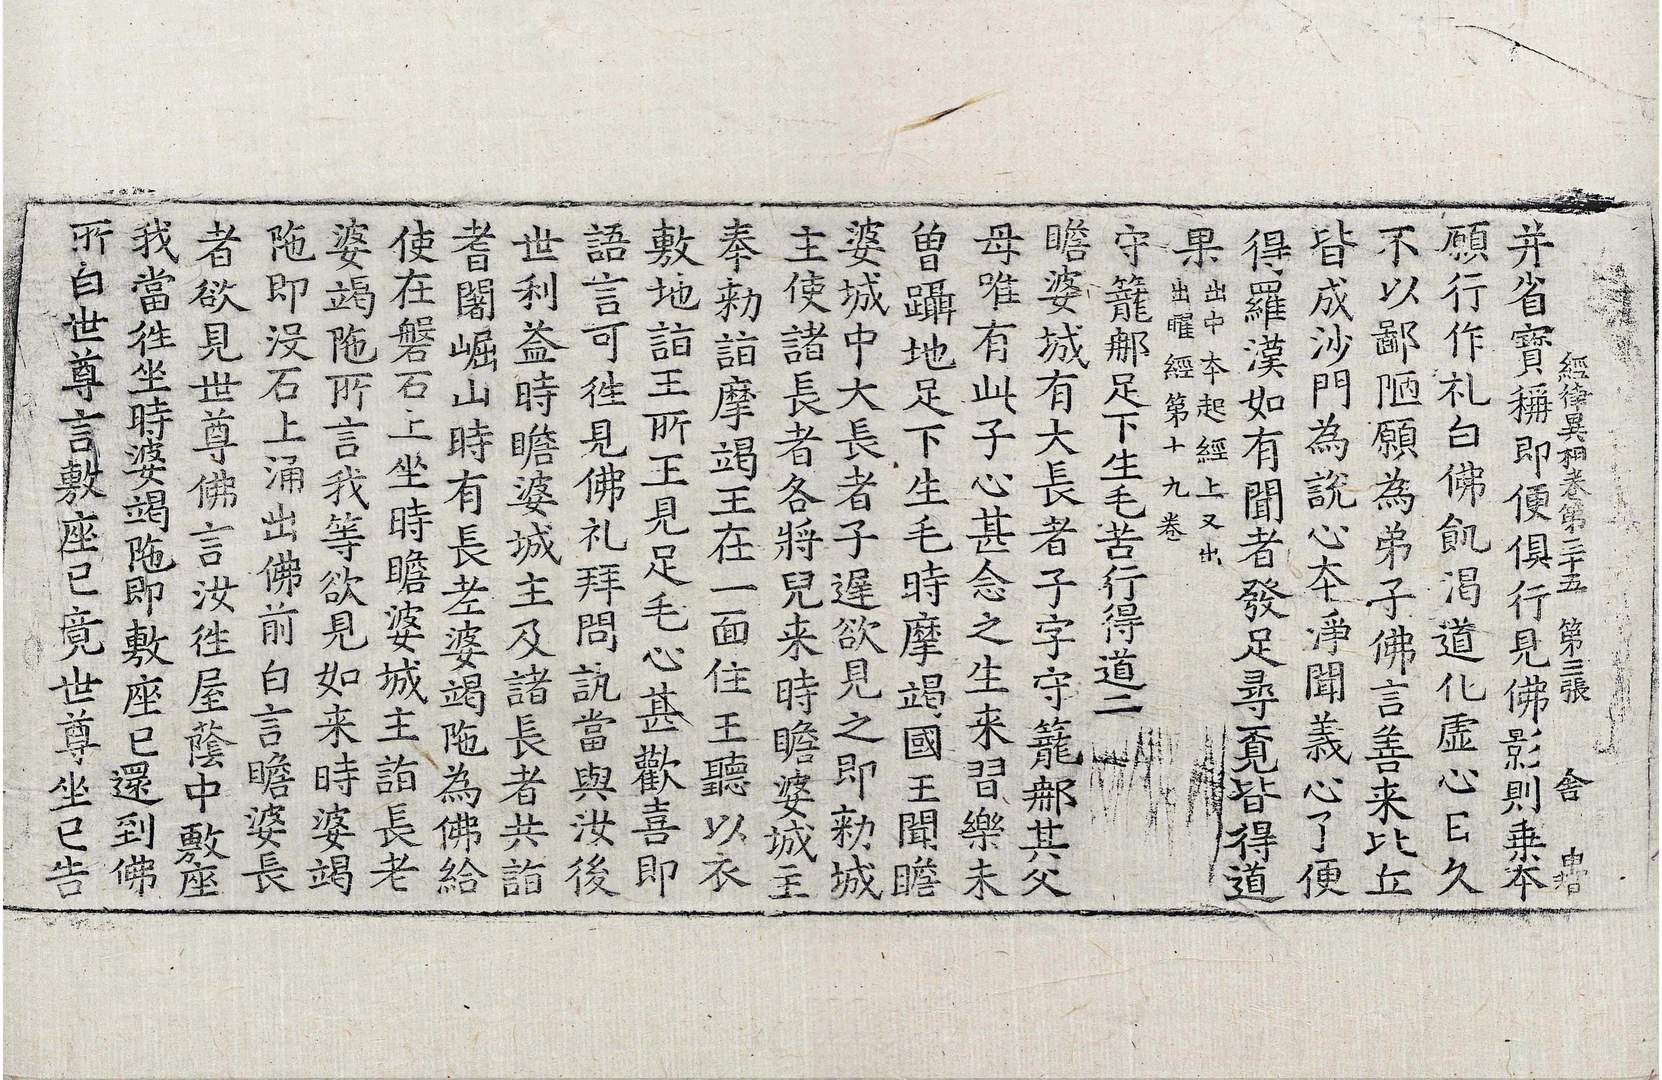 經律異相卷第三十五 第三張 舍
并省寶稱即便俱行見佛影則乗本
願行作礼白佛飢渴道化虚心日久
不以鄙陋願為弟子佛言善来比丘
皆成沙門為說心本淨聞義心了便
得羅漢如有聞者發足尋覓皆得道
果出中本起經上又出
出曜經第十九卷
守籠郍足下生毛苦行得道二
瞻婆城有大長者子字守籠郍其父
母唯有此子心甚念之生来習樂未
曽躡地足下生毛時摩竭國王聞瞻
婆城中大長者子遅欲見之即勑城
主使諸長者各將兒来時瞻婆城主
奉勑詣摩竭王在一面住王聽以衣
敷地詣王所王見足毛心甚歡喜即
語言可徃見佛礼拜問訊當與汝後
世利益時瞻婆城主及諸長者共詣
耆闍崛山時有長老婆竭陁為佛給
使在磐石上坐時瞻婆城主詣長老
婆竭陁所言我等欲見如来時婆竭
陁即没石上涌出佛前白言瞻婆長
者欲見世尊佛言汝徃屋蔭中敷座
我當徃坐時婆竭陁即敷座已還到佛
所白世尊言敷座已竟世尊坐已告